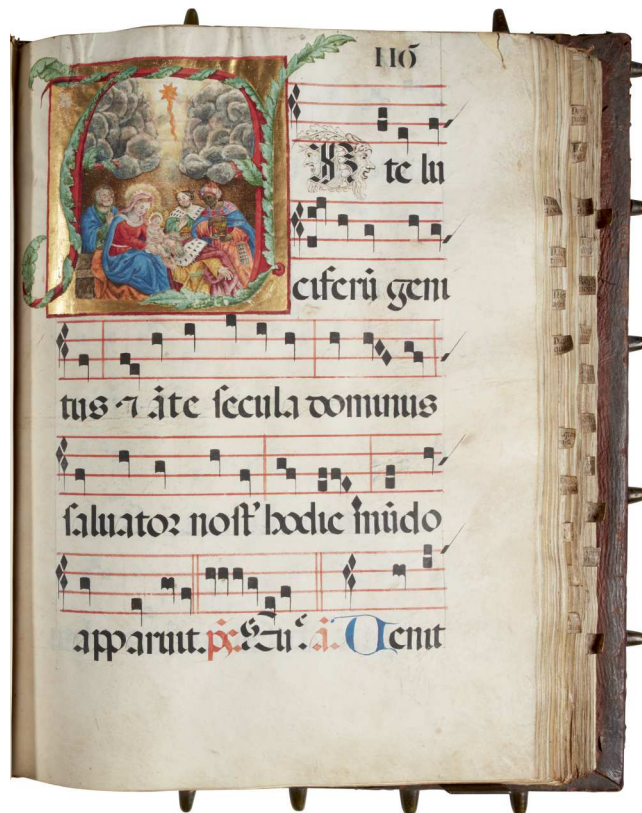 116
A N te lu
ciferū geni
tus ⁊ āte secula dominus
saluator nost' hodie mūdo
apparuit. ps. a. Uenit